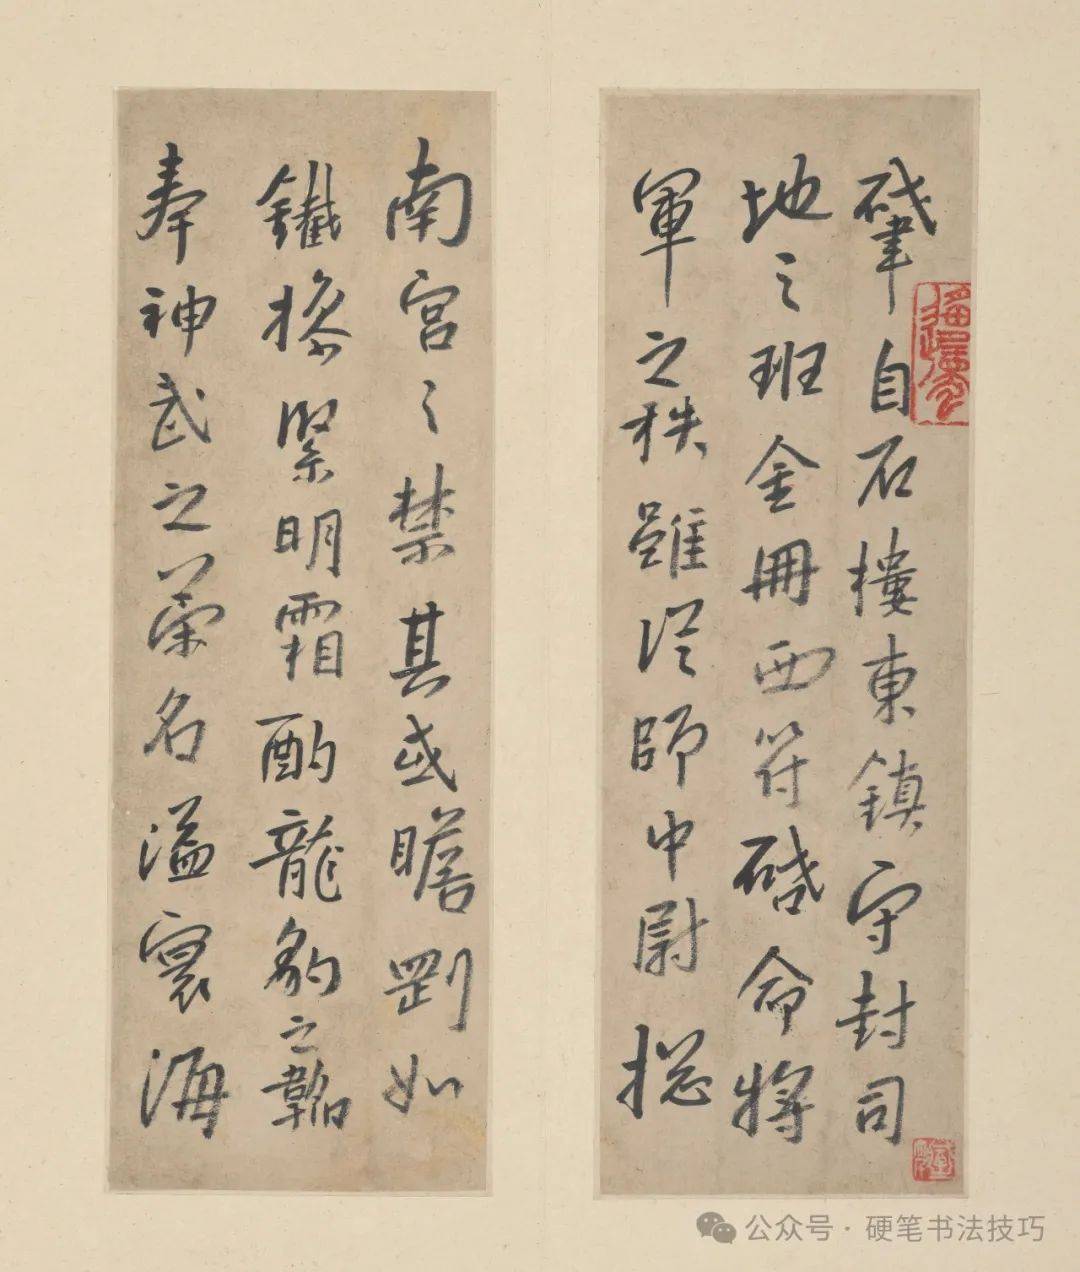 肇自石樓東鎮守封司
地之班金冊西符啓命將
軍之秩雖從師中尉揔
南宮之禁其或瞻剛如
鐵操緊明霜酌龍豹之韜
奉神武之榮名溢寰海
公众号·硬笔书法技巧